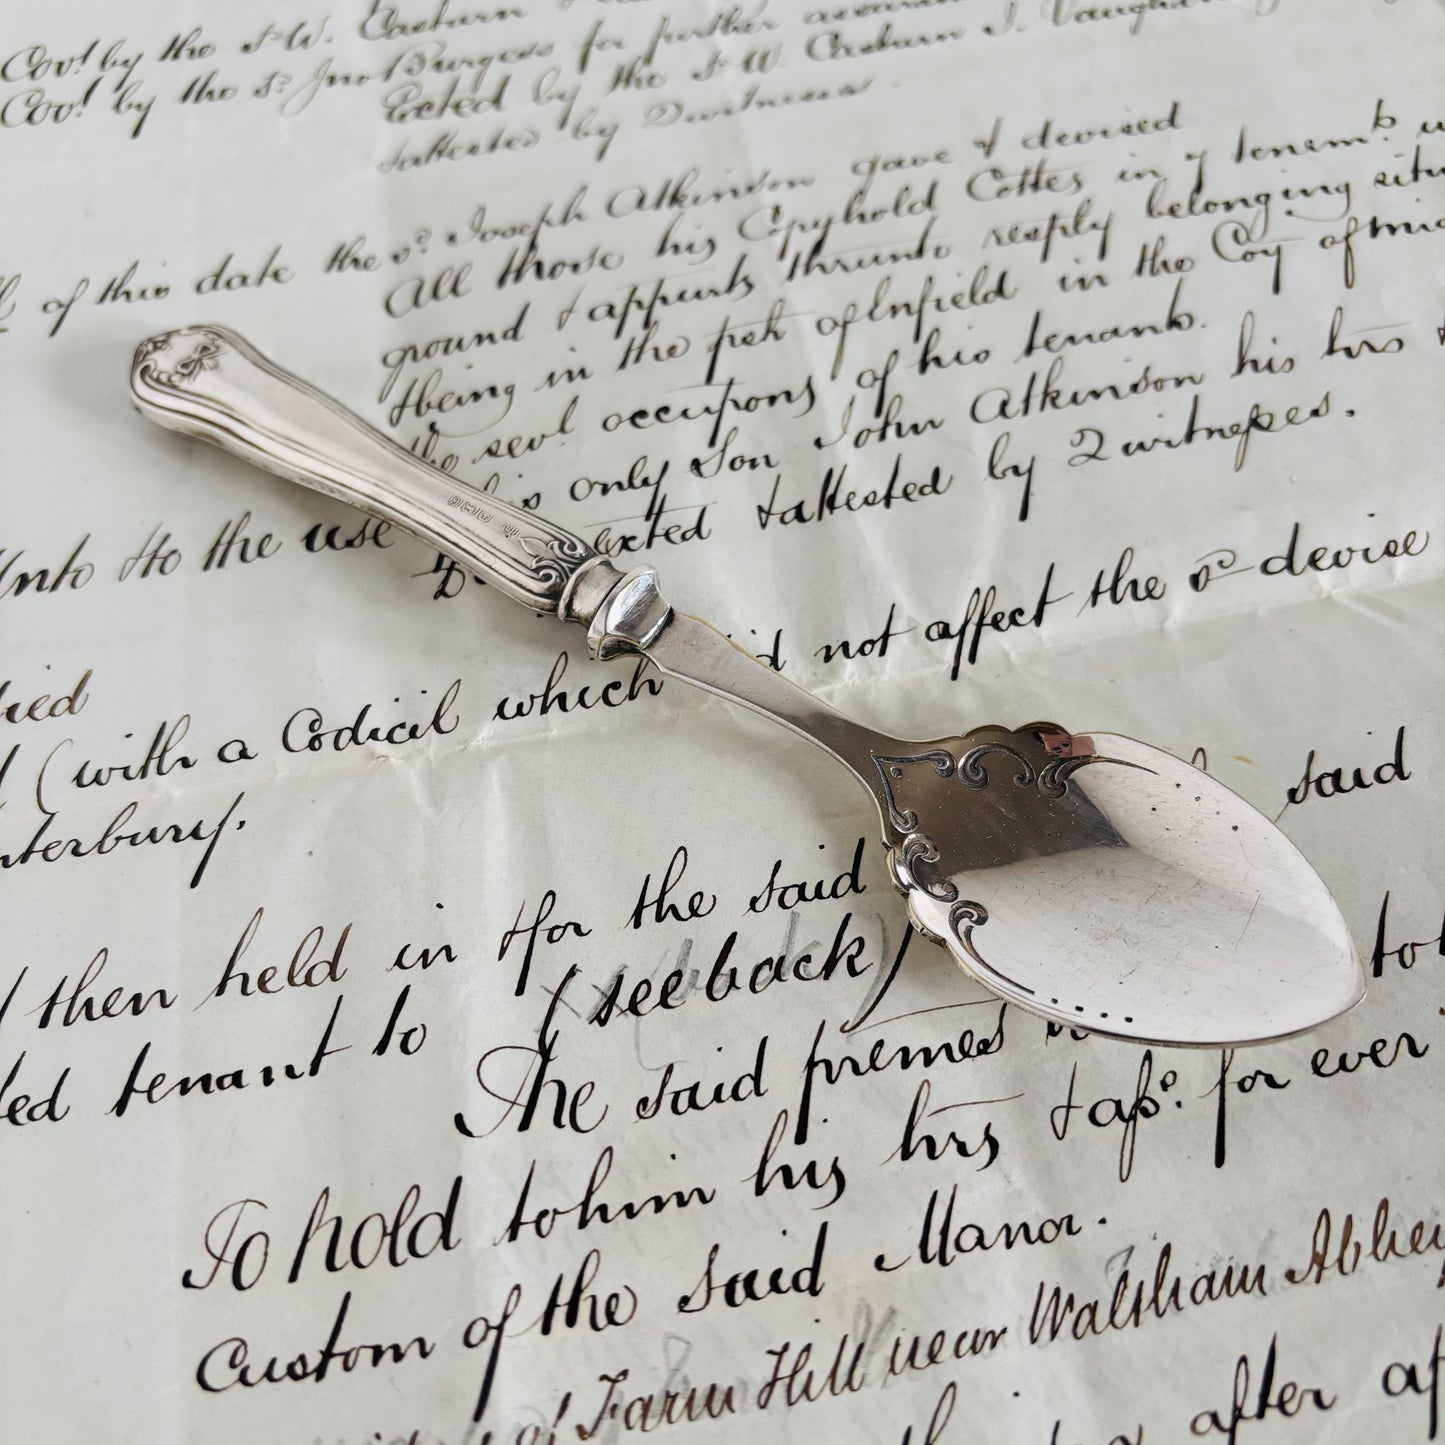 Cov! by the sd W. Casburn
Cov! by the sd Jno Burgess for further assuran
Exted by the sd W. Casburn J. Vaughan
& attested by 2 witnesses.
of this date the sd Joseph Atkinson gave & devised
All those his Copyhold Cottes in 7 tenemts
ground & appurts thrunto resply belonging situ
& being in the psh of Enfield in the Coy of Mid
the sevl occupons of his tenants.
Unto & to the use his only Son John Atkinson his hrs &
Exted & attested by 2 witnesses.
(with a Codicil which did not affect the sd devise
nterbury.
said
then held in & for the said
ted tenant to (see back) to h
The said premes
To hold to him his hrs & asss. for ever
Custom of the said Manor.
of Farm Hill near Waltham Abbey
after